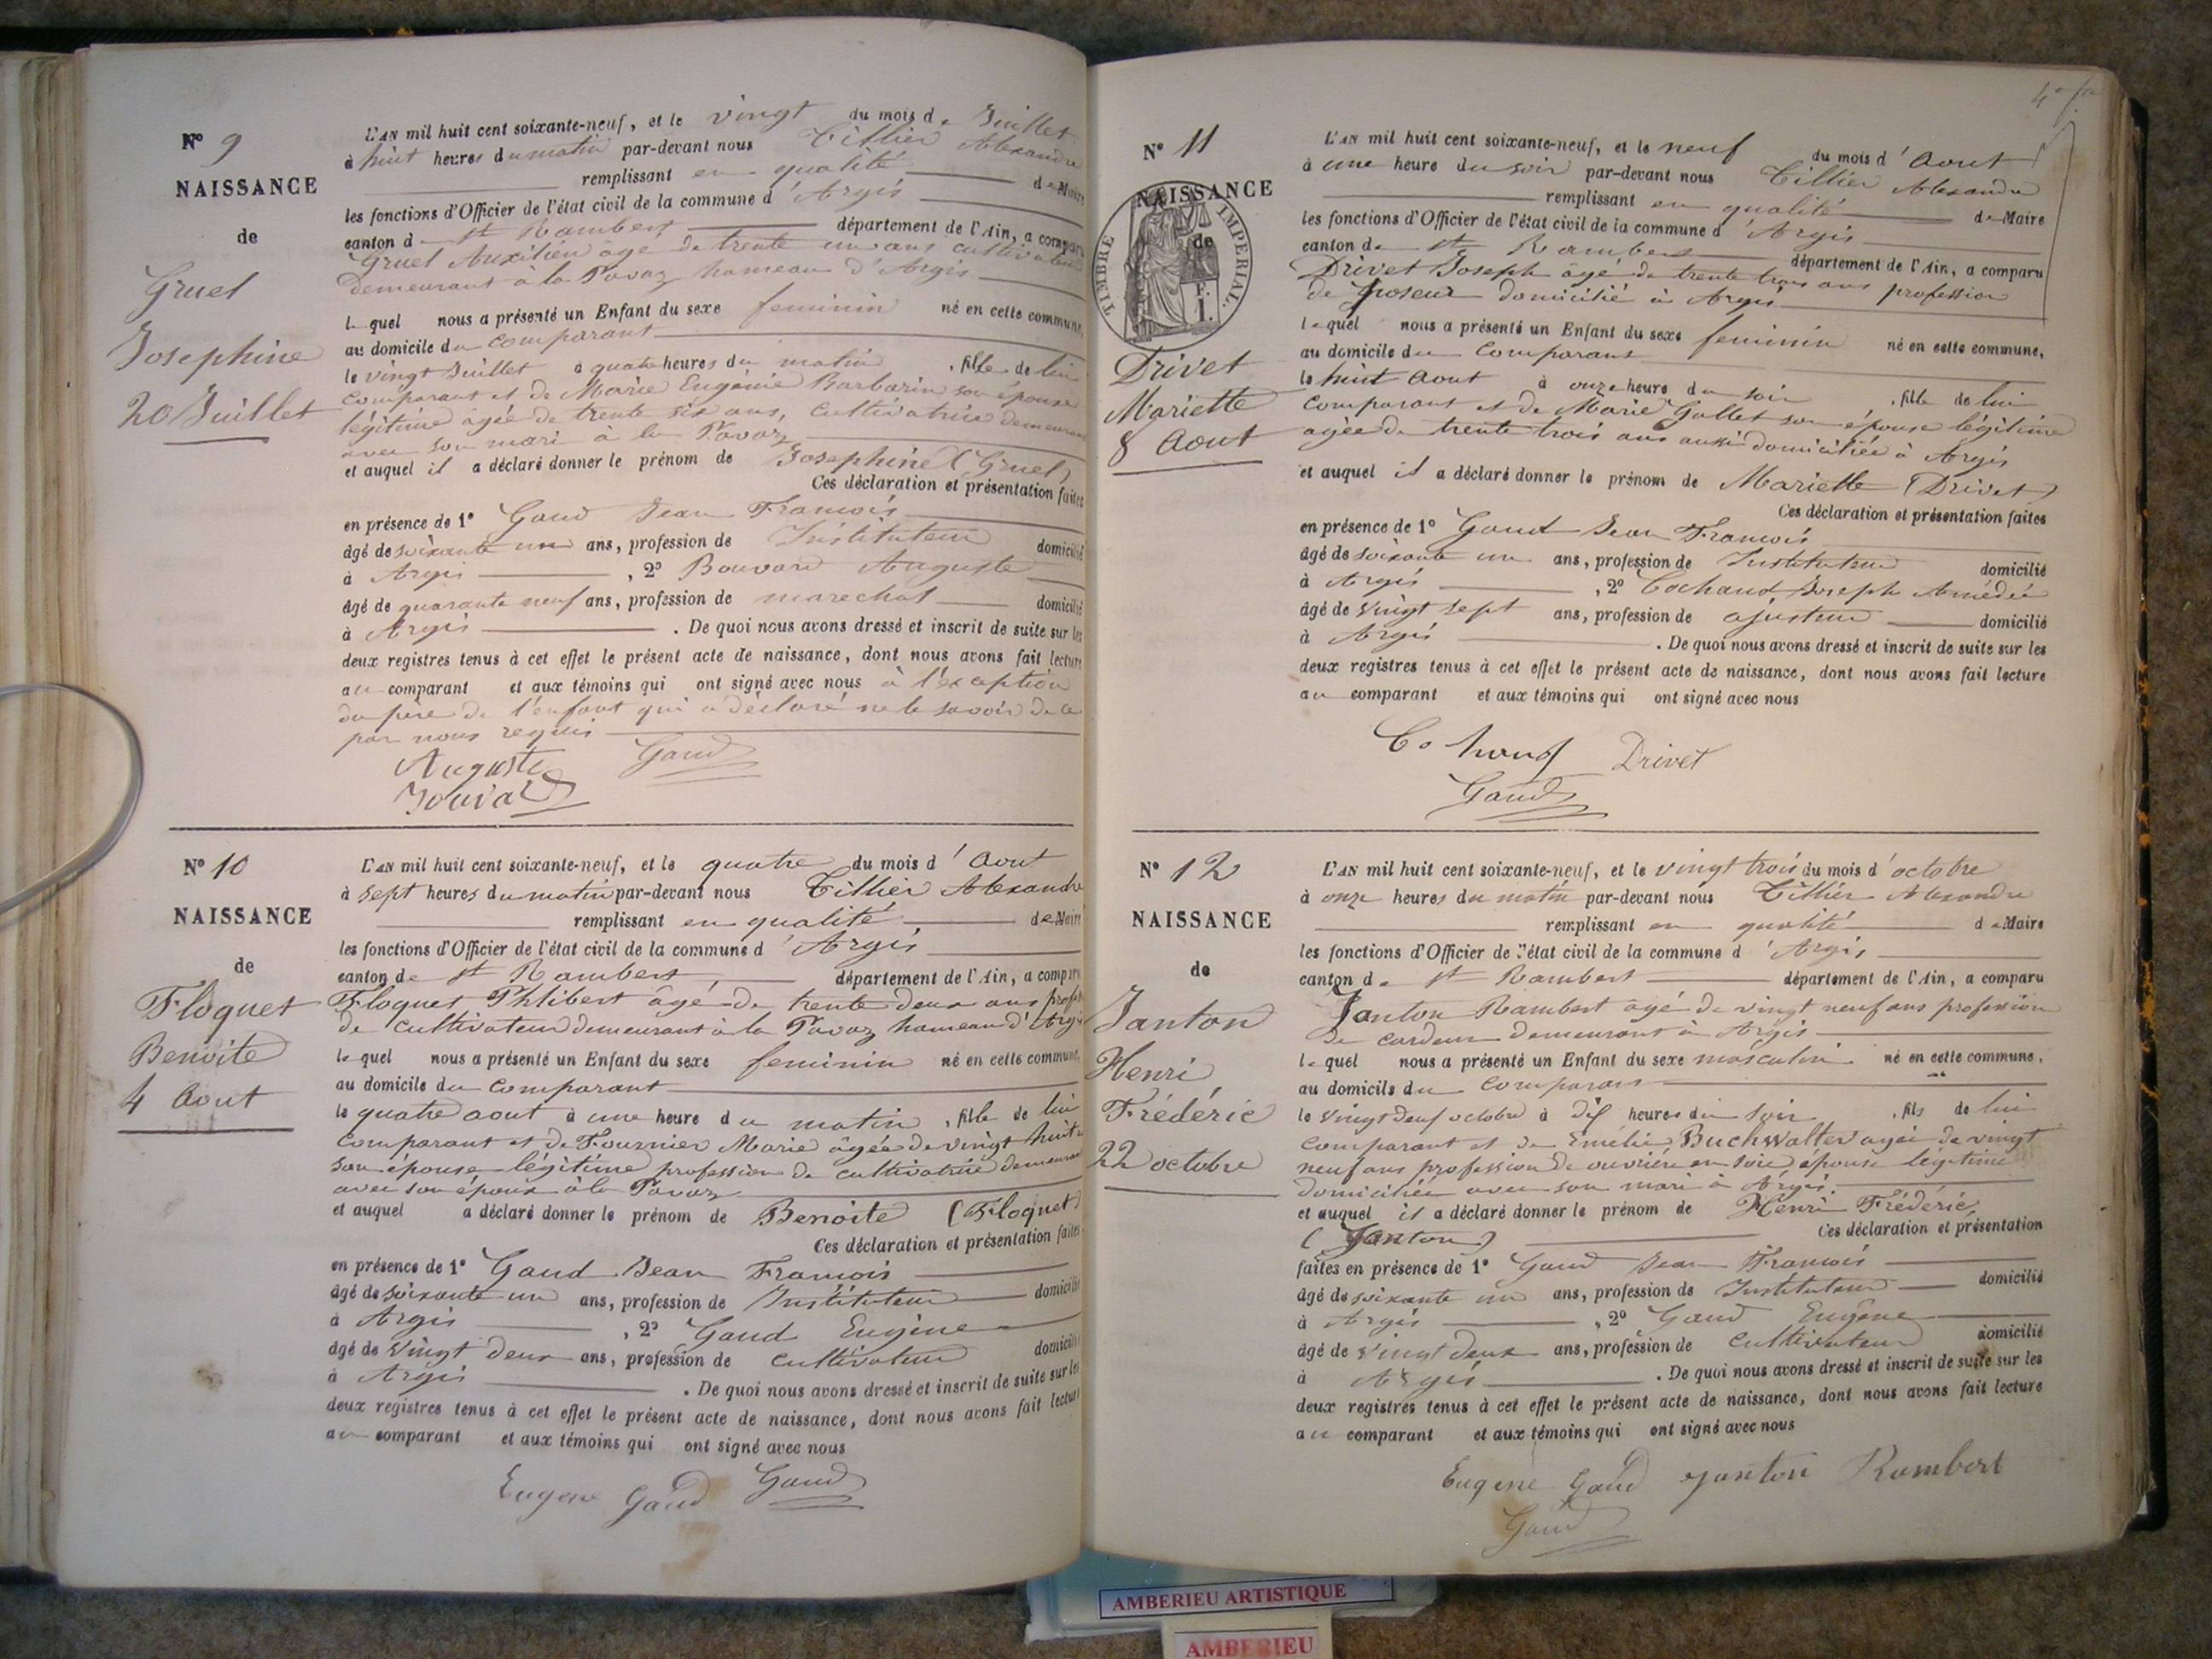 N° 9
NAISSANCE
de
Gruel
Josephine
20 Juillet
L'AN mil huit cent soixante-neuf, et le vingt du mois de Juillet
à huit heures du matin par-devant nous Tillier Alexandre
remplissant en qualité de Maire
les fonctions d'Officier de l'état civil de la commune d'Argis
canton de St Rambert département de l'Ain, a comparu
Gruel Auxilien âgé de trente un ans cultivateur
demeurant à la Pavaz hameau d'Argis
lequel nous a présenté un Enfant du sexe feminin né en cette commune,
au domicile du comparant
le vingt Juillet à quatre heures du matin, fille de lui
comparant et de Marie Eugénie Barbarin son épouse
légitime âgée de trente six ans, cultivatrice demeurant
avec son mari à la Pavaz
et auquel il a déclaré donner le prénom de Josephine (Gruel)
Ces déclaration et présentation faites
en présence de 1° Gaud Jean François
âgé de soixante un ans, profession de Instituteur domicilié
à Argis, 2° Bouvard Auguste
âgé de quarante neuf ans, profession de marechal domicilié
à Argis. De quoi nous avons dressé et inscrit de suite sur les
deux registres tenus à cet effet le présent acte de naissance, dont nous avons fait lecture
au comparant et aux témoins qui ont signé avec nous à l'exception
du père de l'enfant qui a déclaré ne le savoir de ce
par nous requis
Auguste Gaud
N° 10
NAISSANCE
de
Floquet
Benoite
4 Aout
L'AN mil huit cent soixante-neuf, et le quatre du mois d'Aout
à sept heures du matin par-devant nous Tillier Alexandre
remplissant en qualité de Maire
les fonctions d'Officier de l'état civil de la commune d'Argis
canton de St Rambert département de l'Ain, a comparu
Floquet Phlibert âgé de trente deux ans
de cultivateur demeurant à la Pavaz hameau d'Argis
lequel nous a présenté un Enfant du sexe feminin né en cette commune,
au domicile du comparant
le quatre aout à une heure du matin, fille de lui
comparant et de Fournier Marie âgée de vingt huit
son épouse légitime profession de cultivatrice demeurant
avec son époux à la Pavaz
et auquel a déclaré donner le prénom de Benoite (Floquet)
Ces déclaration et présentation faites
en présence de 1° Gaud Jean François
âgé de soixante un ans, profession de Instituteur domicilié
à Argis, 2° Gaud Eugène
âgé de vingt deux ans, profession de cultivateur domicilié
à Argis. De quoi nous avons dressé et inscrit de suite sur les
deux registres tenus à cet effet le présent acte de naissance, dont nous avons fait lecture
au comparant et aux témoins qui ont signé avec nous
Eugene Gaud Gaud
N° 11
NAISSANCE
de
TIMBRE IMPERIAL
F.
1.
Drivet
Mariette
8 Aout
L'AN mil huit cent soixante-neuf, et le neuf du mois d'Aout
à une heure du soir par-devant nous Tillier Alexandre
remplissant en qualité de Maire
les fonctions d'Officier de l'état civil de la commune d'Argis
canton de St Rambert département de l'Ain, a comparu
Drivet Joseph âgé de trente trois ans profession
de poseur domicilié à Argis
lequel nous a présenté un Enfant du sexe feminin né en cette commune,
au domicile du comparant
le huit Aout à onze heure du soir, fille de lui
comparant et de Marie Gallet son épouse légitime
agée de trente trois ans aussi domiciliée à Argis
et auquel il a déclaré donner le prénom de Mariette (Drivet)
Ces déclaration et présentation faites
en présence de 1° Gaud Jean François
âgé de soixante un ans, profession de Instituteur domicilié
à Argis, 2° Cochaud Joseph Amédée
âgé de vingt sept ans, profession de ajusteur domicilié
à Argis. De quoi nous avons dressé et inscrit de suite sur les
deux registres tenus à cet effet le présent acte de naissance, dont nous avons fait lecture
au comparant et aux témoins qui ont signé avec nous
Cohaud Drivet
Gaud
N° 12
NAISSANCE
de
Janton
Henri
Frédéric
22 octobre
L'AN mil huit cent soixante-neuf, et le vingt trois du mois d'octobre
à onze heures du matin par-devant nous Tillier Alexandre
remplissant en qualité de Maire
les fonctions d'Officier de l'état civil de la commune d'Argis
canton de St Rambert département de l'Ain, a comparu
Janton Rambert âgé de vingt neuf ans profession
de cardeur demeurant à Argis
lequel nous a présenté un Enfant du sexe masculin né en cette commune,
au domicile du comparant
le vingt deux octobre à dix heures du soir, fils de lui
comparant et de Emélie Buchwalter agée de vingt
neuf ans profession de ouvrière en soie épouse légitime
domiciliée avec son mari à Argis.
et auquel il a déclaré donner le prénom de Henri Frédéric
(Janton) Ces déclaration et présentation
faites en présence de 1° Gaud Jean François
âgé de soixante un ans, profession de Instituteur domicilié
à Argis, 2° Gaud Eugène
âgé de vingt deux ans, profession de cultivateur domicilié
à Argis. De quoi nous avons dressé et inscrit de suite sur les
deux registres tenus à cet effet le présent acte de naissance, dont nous avons fait lecture
au comparant et aux témoins qui ont signé avec nous
Eugène Gaud Janton Rambert
Gaud
AMBERIEU ARTISTIQUE
AMBERIEU